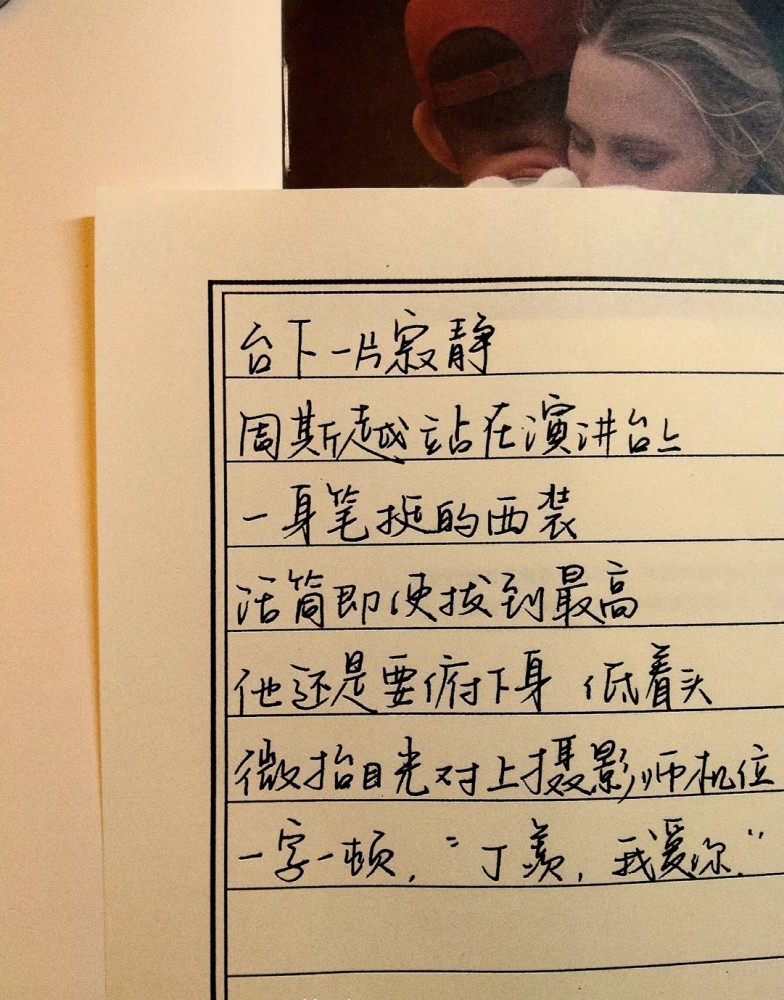 台下一片寂静
周斯越站在演讲台上
一身笔挺的西装
话筒即便拔到最高
他还是要俯下身 低着头
微抬目光对上摄影师机位
一字一顿，“丁羡，我爱你.”